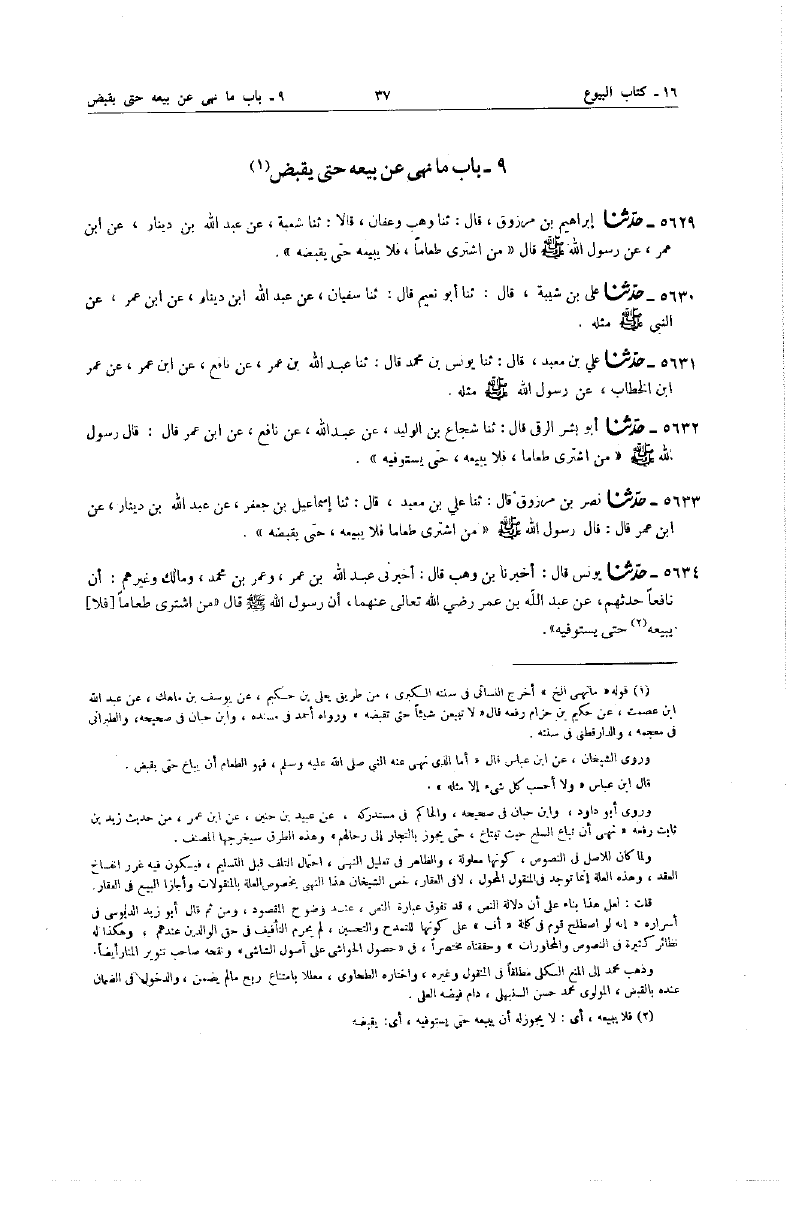 ١٦ ـ كتاب البيوع ٣٧ ٩ ـ باب ما نهى عن بيعه حتى يقبض
٩ ـ باب ما نهى عن بيعه حتى يقبض (١)
٥٦٢٩ ـ حدّثنا إبراهيم بن مرزوق ، قال : ثنا وهب وعفان ، قالا : ثنا شعبة ، عن عبد الله بن دينار ، عن ابن
عمر ، عن رسول الله ﷺ قال « من اشترى طعاماً ، فلا يبيعه حتّى يقبضه » .
٥٦٣٠ ـ حدّثنا علي بن شيبة ، قال : ثنا أبو نعيم قال : ثنا سفيان ، عن عبد الله ابن دينار ، عن ابن عمر ، عن
النبي ﷺ مثله .
٥٦٣١ ـ حدّثنا علي بن معبد ، قال : ثنا يونس بن محمد قال : ثنا عبد الله بن عمر ، عن نافع ، عن ابن عمر ، عن عمر
ابن الخطاب ، عن رسول الله ﷺ مثله .
٥٦٣٢ ـ حدّثنا أبو بشر الرقى قال : ثنا شجاع بن الوليد ، عن عبدالله ، عن نافع ، عن ابن عمر قال : قال رسول
الله ﷺ « من اشترى طعاما ، فلا يبيعه ، حتّى يستوفيه » .
٥٦٣٣ ـ حدّثنا نصر بن مرزوق قال : ثنا علي بن معبد ، قال : ثنا إسماعيل بن جعفر ، عن عبد الله بن دينار ، عن
ابن عمر قال : قال رسول الله ﷺ « من اشترى طعاما فلا يبيعه ، حتّى يقبضه » .
٥٦٣٤ ـ حدّثنا يونس قال : أخبرنا بن وهب قال : أخبرنى عبد الله بن عمر ، وعمر بن محمد ، ومالك وغيرهم : أن
نافعاً حدثهم، عن عبد الله بن عمر رضي الله تعالى عنهما، أن رسول الله ﷺ قال «من اشترى طعاماً [فلا]
يبيعه(٢) حتى يستوفيه».
(١) قوله « مانهى الخ » أخرج النسائى فى سننه الكبرى ، من طريق يعلى بن حكيم ، عن يوسف بن ماهك ، عن عبد الله
ابن عصمت ، عن حكيم بن حزام رفعه قال« لا تبيعن شيئاً حتى تقبضه » ورواه أحمد فى مسنده ، وابن حبان فى صحيحه، والطبرانى
فى معجمه ، والدارقطنى فى سننه .
وروى الشيخان ، عن ابن عباس قال « أما الذى نهى عنه النبي صلى الله عليه وسلم ، فهو الطعام أن يباع حتى يقبض .
قال ابن عباس « ولا أحسب كل شىء إلا مثله » .
وروى أبو داود ، وابن حبان فى صحيحه ، والحاكم فى مستدركه ، عن عبيد بن حنين ، عن ابن عمر ، من حديث زيد بن
ثابت رفعه « نهى أن تباع السلع حيث تبتاع ، حتى يجوز بالتجار إلى رحالهم» وهذه الطرق سيخرجها المصنف .
ولما كان للاصل فى النصوص ، كونها معلولة ، والظاهر فى تعليل النهى ، احتمال التلف قبل التسليم ، فيكون فيه غرر انفساخ
العقد ، وهذه العلة إنما توجد فى المنقول المحول ، لافى العقار، خص الشيخان هذا النهى بخصوص العلة بالمنقولات وأجازا البيع فى العقار.
قلت : لعل هذا بناء على أن دلالة النص ، قد تفوق عبارة النص ، عند وضوح المقصود ، ومن ثم قال أبو زيد الدبوسى فى
أسراره « إنه لو اصطلح قوم فى كلمة « أف » على كونها للتمدح والتحسين ، لم يحرم التأفيف فى حق الوالدين عندهم ، وهكذا له
نظائر كثيرة فى النصوص والمحاورات » وحققناه مختصراً ، فى « حصول الحواشى على أصول الشاشى» ونقحه صاحب تنوير المنار أيضاً.
وذهب محمد إلى المنع الكلى مطلقاً فى المنقول وغيره ، واختاره الطحاوى ، معللا بامتناع ربح مالم يضمن ، والدخول فى الضمان
عنده بالقبض ، المولوى محمد حسن السنبهلى ، دام فيضه العلى .
(٢) فلا يبيعه ، أى : لا يجوزله أن يبيعه حتى يستوفيه ، أى: يقبضه